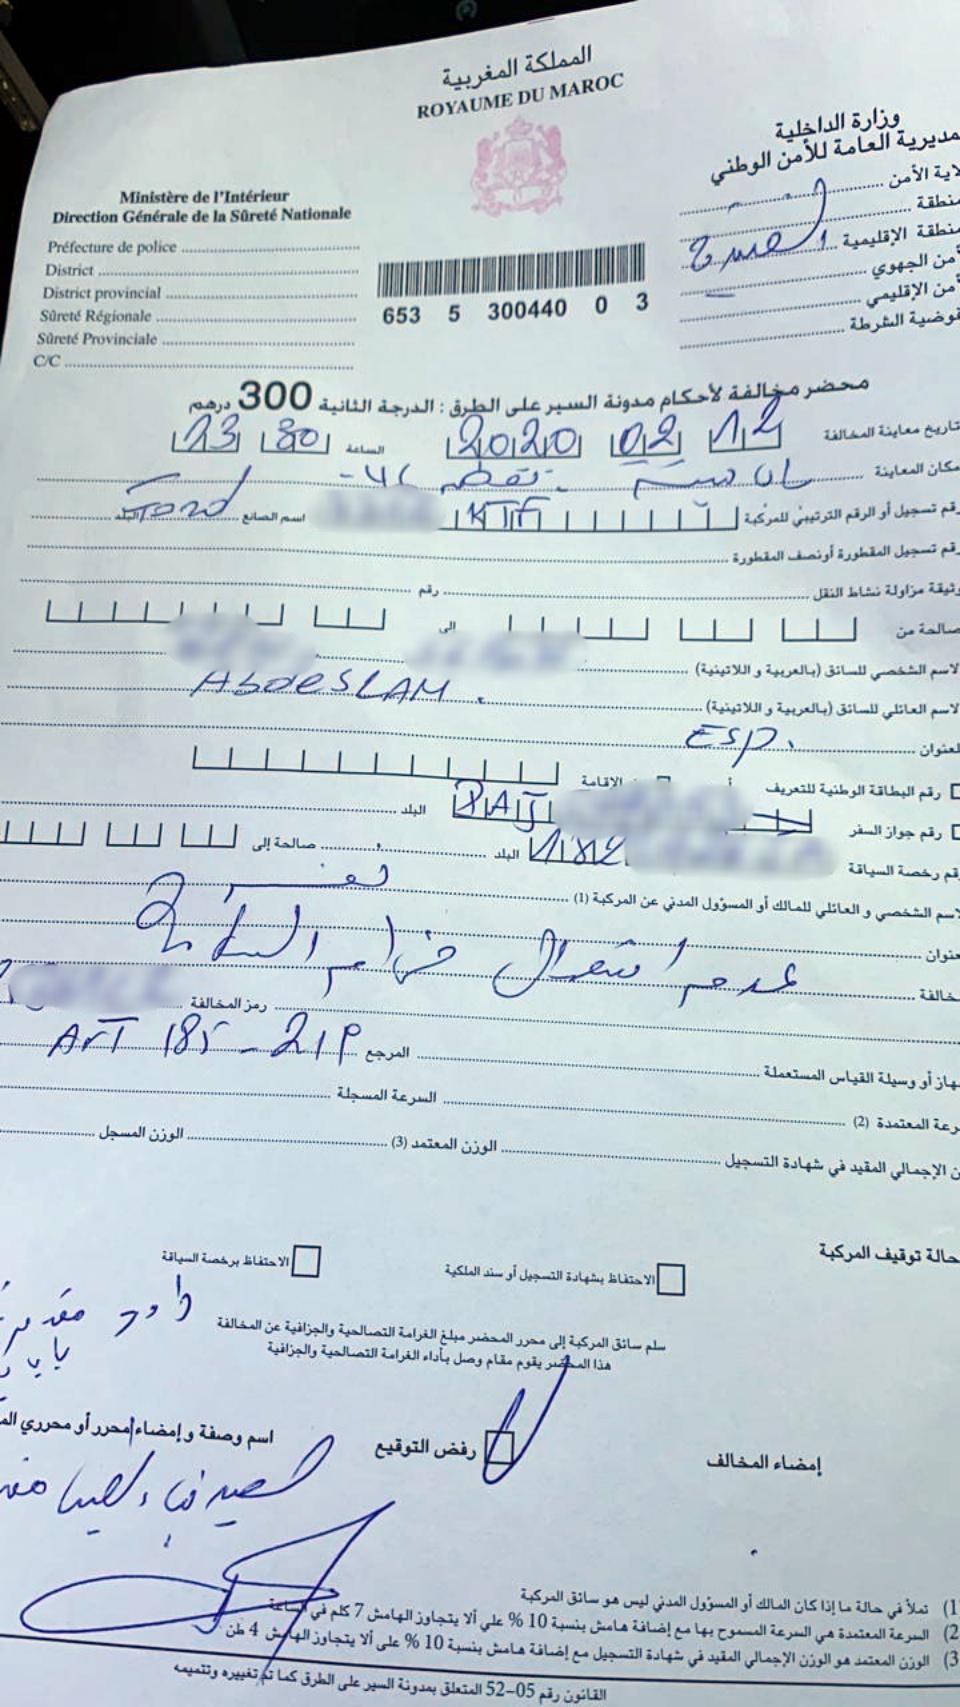 المملكة المغربية
ROYAUME DU MAROC
وزارة الداخلية
مديرية العامة للأمن الوطني
لاية الأمن
منطقة
منطقة الإقليمية
أمن الجهوي
أمن الإقليمي
فوضية الشرطة
Ministère de l'Intérieur
Direction Générale de la Sûreté Nationale
Préfecture de police
District
District provincial
Sûreté Régionale
Sûreté Provinciale
C/C
653 5 300440 0 3
محضر مخالفة لأحكام مدونة السير على الطرق : الدرجة الثانية 300 درهم
تاريخ معاينة المخالفة 12 02 2020 الساعة
مكان المعاينة
رقم تسجيل أو الرقم الترتيبي للمركبة اسم الصانع Ford البلد
رقم تسجيل المقطورة أونصف المقطورة
وثيقة مزاولة نشاط النقل رقم
صالحة من إلى
لاسم الشخصي للسائق (بالعربية و اللاتينية)
لاسم العائلي للسائق (بالعربية و اللاتينية) ABDESLAM.
لعنوان ESP.
رقم البطاقة الوطنية للتعريف الإقامة
رقم جواز السفر البلد
رقم رخصة السياقة البلد صالحة إلى
لاسم الشخصي و العائلي للمالك أو المسؤول المدني عن المركبة (1)
عنوان
خالفة عدم استعمال حزام السلامة
رمز المخالفة
المرجع ART 185-21P
هاز أو وسيلة القياس المستعملة
رعة المعتمدة (2) السرعة المسجلة
ن الإجمالي المقيد في شهادة التسجيل الوزن المعتمد (3) الوزن المسجل
حالة توقيف المركبة
الاحتفاظ بشهادة التسجيل أو سند الملكية
الاحتفاظ برخصة السياقة
سلم سائق المركبة إلى محرر المحضر مبلغ الغرامة التصالحية والجزافية عن المخالفة
هذا المحضر يقوم مقام وصل بأداء الغرامة التصالحية والجزافية
إمضاء المخالف
رفض التوقيع
اسم وصفة و إمضاء محرر أو محرري
(1) تملأ في حالة ما إذا كان المالك أو المسؤول المدني ليس هو سائق المركبة
(2) السرعة المعتمدة هي السرعة المسموح بها مع إضافة هامش بنسبة 10 % على ألا يتجاوز الهامش 7 كلم في الساعة
(3) الوزن المعتمد هو الوزن الإجمالي المقيد في شهادة التسجيل مع إضافة هامش بنسبة 10 % على ألا يتجاوز الهامش 4 طن
القانون رقم 05-52 المتعلق بمدونة السير على الطرق كما تم تغييره وتتميمه